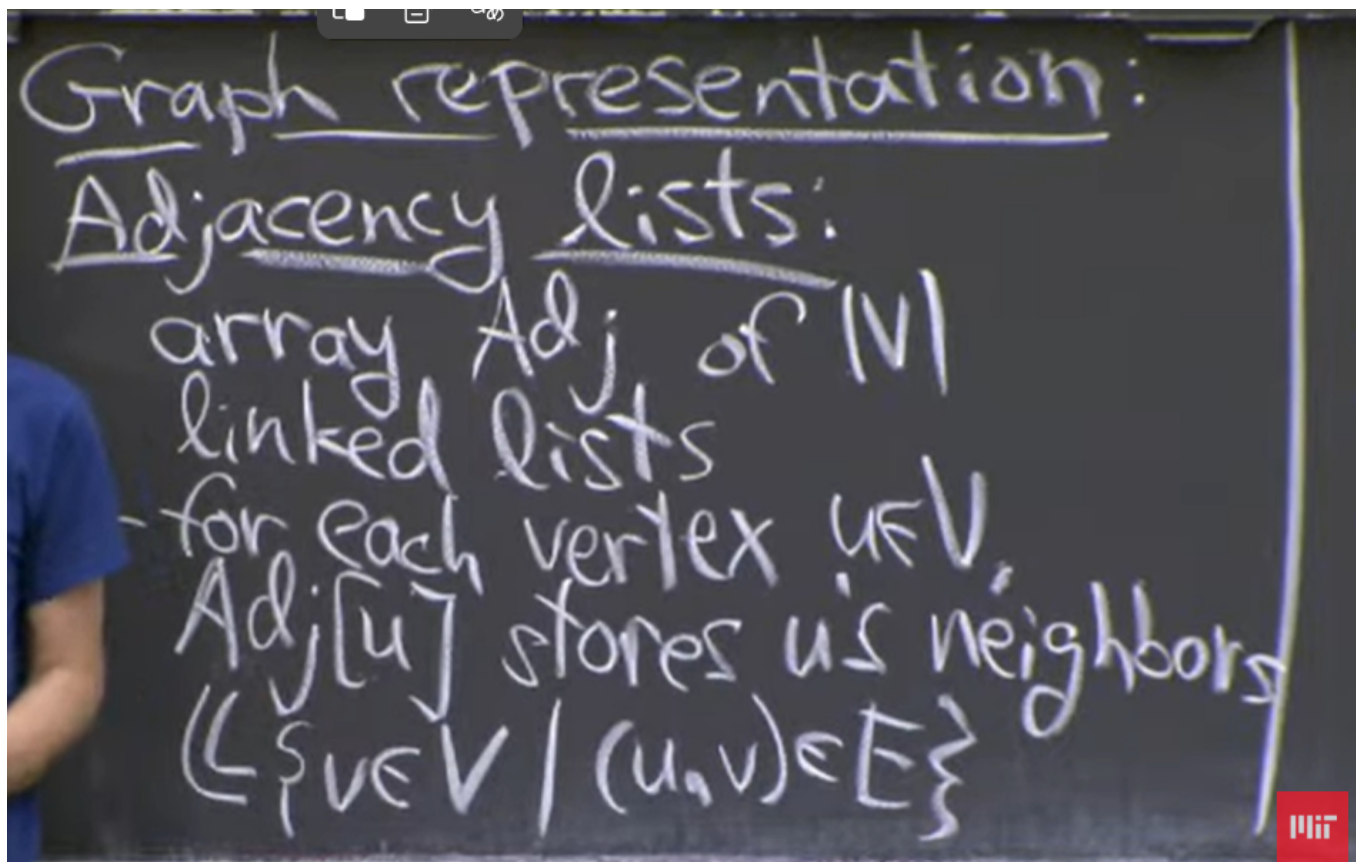 Graph representation:
Adjacency lists:
array Adj of |V|
linked lists
- for each vertex u∈V,
Adj[u] stores u's neighbors
(↳{v∈V | (u,v)∈E}
MIT